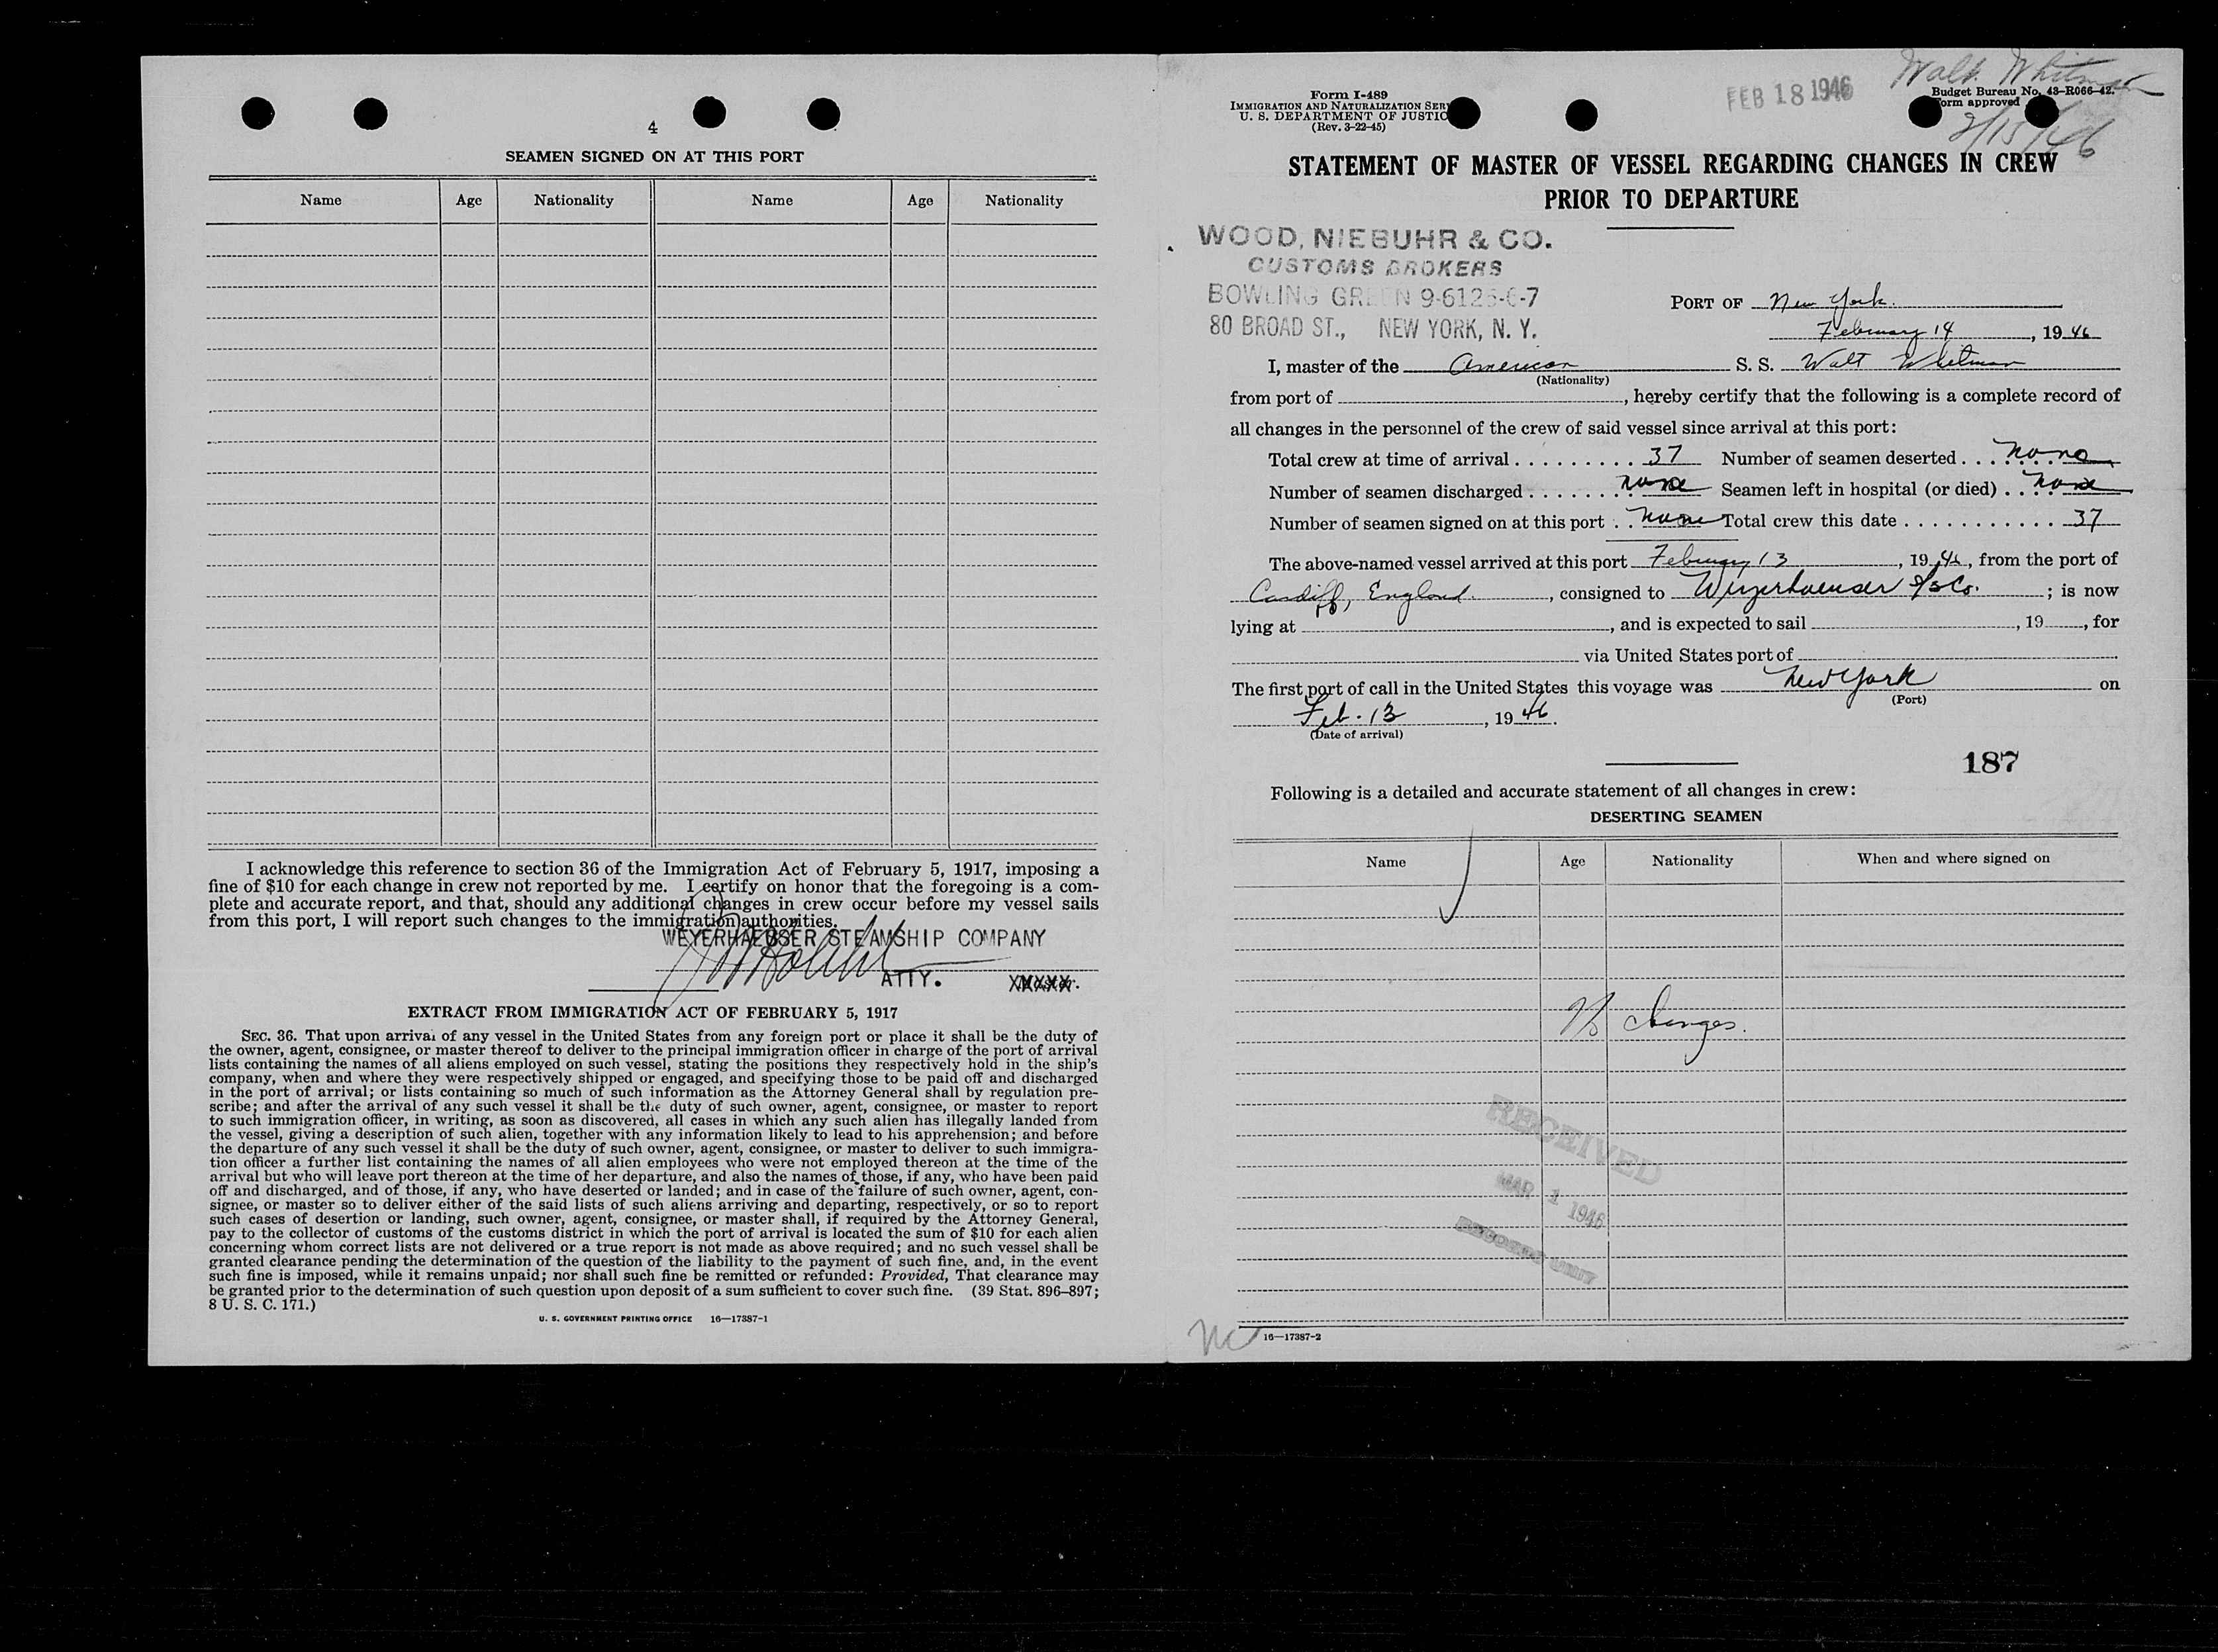 4
SEAMEN SIGNED ON AT THIS PORT
Name Age Nationality Name Age Nationality
I acknowledge this reference to section 36 of the Immigration Act of February 5, 1917, imposing a
fine of $10 for each change in crew not reported by me. I certify on honor that the foregoing is a com-
plete and accurate report, and that, should any additional changes in crew occur before my vessel sails
from this port, I will report such changes to the immigration authorities.
WEYERHAEUSER STEAMSHIP COMPANY
ATTY.
EXTRACT FROM IMMIGRATION ACT OF FEBRUARY 5, 1917
SEC. 36. That upon arrival of any vessel in the United States from any foreign port or place it shall be the duty of
the owner, agent, consignee, or master thereof to deliver to the principal immigration officer in charge of the port of arrival
lists containing the names of all aliens employed on such vessel, stating the positions they respectively hold in the ship's
company, when and where they were respectively shipped or engaged, and specifying those to be paid off and discharged
in the port of arrival; or lists containing so much of such information as the Attorney General shall by regulation pre-
scribe; and after the arrival of any such vessel it shall be the duty of such owner, agent, consignee, or master to report
to such immigration officer, in writing, as soon as discovered, all cases in which any such alien has illegally landed from
the vessel, giving a description of such alien, together with any information likely to lead to his apprehension; and before
the departure of any such vessel it shall be the duty of such owner, agent, consignee, or master to deliver to such immigra-
tion officer a further list containing the names of all alien employees who were not employed thereon at the time of the
arrival but who will leave port thereon at the time of her departure, and also the names of those, if any, who have been paid
off and discharged, and of those, if any, who have deserted or landed; and in case of the failure of such owner, agent, con-
signee, or master so to deliver either of the said lists of such aliens arriving and departing, respectively, or so to report
such cases of desertion or landing, such owner, agent, consignee, or master shall, if required by the Attorney General,
pay to the collector of customs of the customs district in which the port of arrival is located the sum of $10 for each alien
concerning whom correct lists are not delivered or a true report is not made as above required; and no such vessel shall be
granted clearance pending the determination of the question of the liability to the payment of such fine, and, in the event
such fine is imposed, while it remains unpaid; nor shall such fine be remitted or refunded: Provided, That clearance may
be granted prior to the determination of such question upon deposit of a sum sufficient to cover such fine. (39 Stat. 896–897;
8 U. S. C. 171.)
U. S. GOVERNMENT PRINTING OFFICE 16—17387-1
Walt Whitman
2/15/46
Form I-489
IMMIGRATION AND NATURALIZATION SER
U. S. DEPARTMENT OF JUSTIC
(Rev. 3-22-45)
FEB 18 1946
Budget Bureau No. 43-R066-42.
Form approved
STATEMENT OF MASTER OF VESSEL REGARDING CHANGES IN CREW
PRIOR TO DEPARTURE
WOOD, NIEBUHR & CO.
CUSTOMS BROKERS
BOWLING GREEN 9-6125-6-7
80 BROAD ST., NEW YORK, N. Y.
PORT OF New York.
February 14, 1946
I, master of the American S. S. Walt Whitman
(Nationality)
from port of , hereby certify that the following is a complete record of
all changes in the personnel of the crew of said vessel since arrival at this port:
Total crew at time of arrival . . . . . . . . . 37 Number of seamen deserted . . . none
Number of seamen discharged . . . . . . . none Seamen left in hospital (or died) . . none
Number of seamen signed on at this port . . none Total crew this date . . . . . . . . . . . 37
The above-named vessel arrived at this port February 13, 1946, from the port of
Cardiff, England., consigned to Weyerhaeuser S/S Co. ; is now
lying at , and is expected to sail , 19 , for
via United States port of .
The first port of call in the United States this voyage was New York on
(Port)
Feb. 13, 1946.
(Date of arrival)
187
Following is a detailed and accurate statement of all changes in crew:
DESERTING SEAMEN
Name Age Nationality When and where signed on
No changes.
RECEIVED
MAR 1 1946
16—17387-2